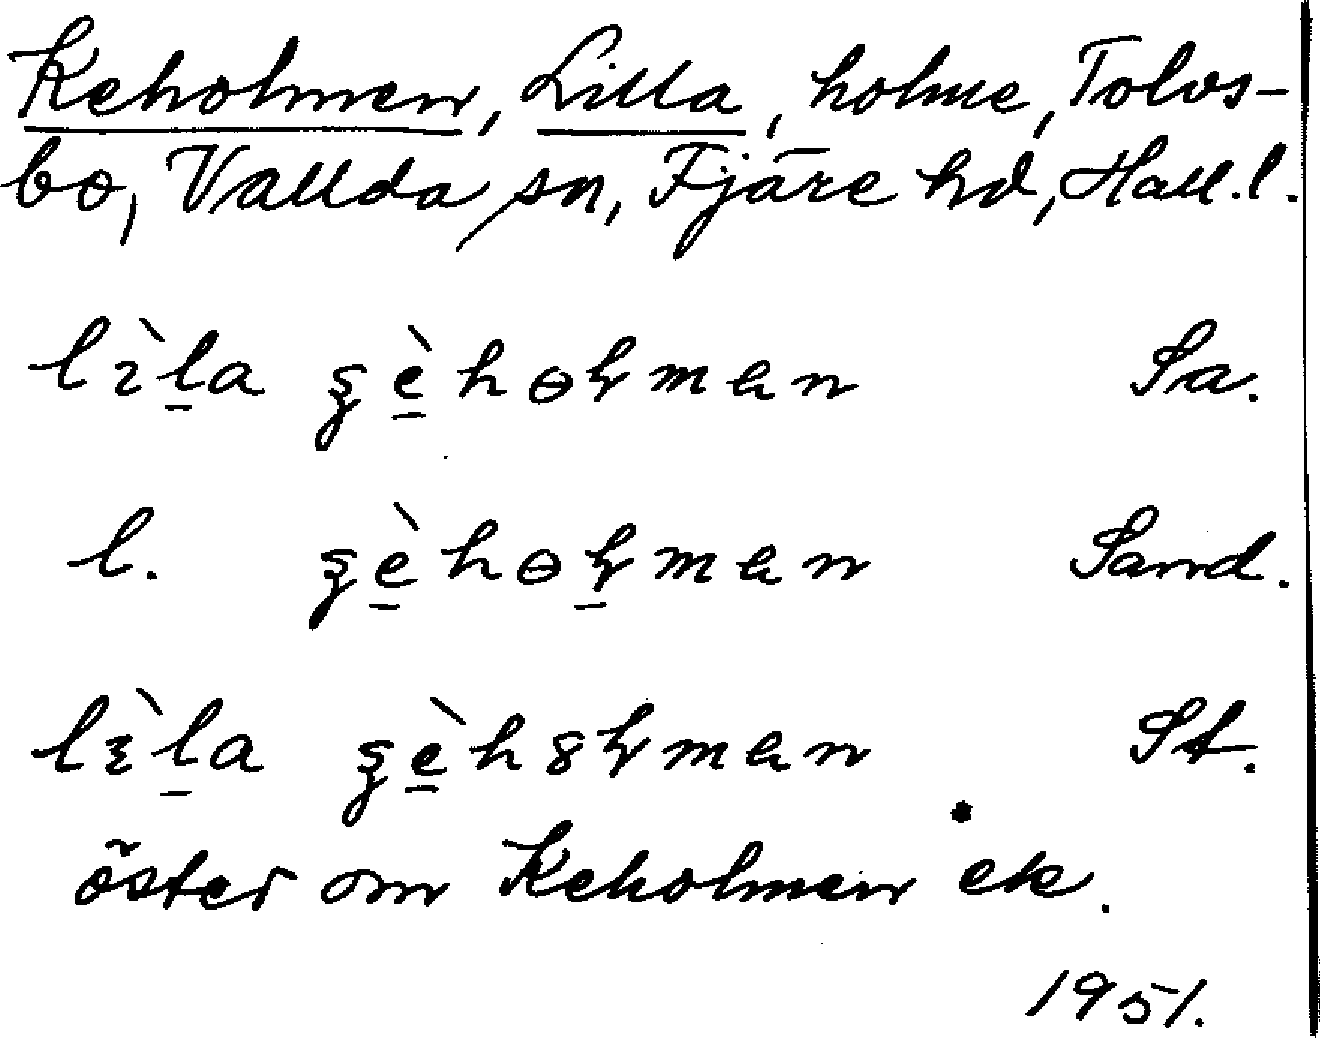 Keholmen, Lilla, holme, Tolvs-
bo, Vallda sn, Fjäre hd, Hall. l.
lìla ʂèhɵɫman Sa.
l. ʂèhɵɫman Sand.
lìla ʂèh8ɫman St.
öster om Keholmen ek.
1951.